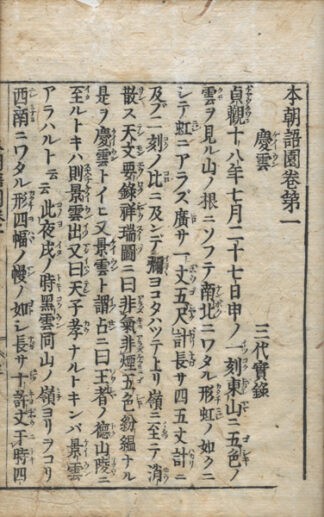 本朝語園卷第一
慶雲
三代實錄
貞觀十八年七月二十七日申ノ一刻東山ニ五色ノ
雲ヲ見ル山ノ根ニソフテ南北ニワタル形虹ノ如クニ
シテ虹ニアラズ廣サ一丈五尺計長サ四五丈計ニ
及ブ二刻ノ比ニ及ンデ彌ヨコタハツテ上リ嶺ニ至テ消
散ス天文要錄祥瑞圖ニ曰非氣非煙五色紛縕ナル
是ヲ慶雲トイヒ又景雲ト謂占ニ曰王者ノ德山陵ニ
至ルトキハ則景雲出又曰天子孝ナルトキンバ景雲
アラハルト云云此夜戌ノ時黑雲同山ノ嶺ヨリヲコリ
西南ニワタル形四幅ノ幔ノ如シ長サ十許丈于時四